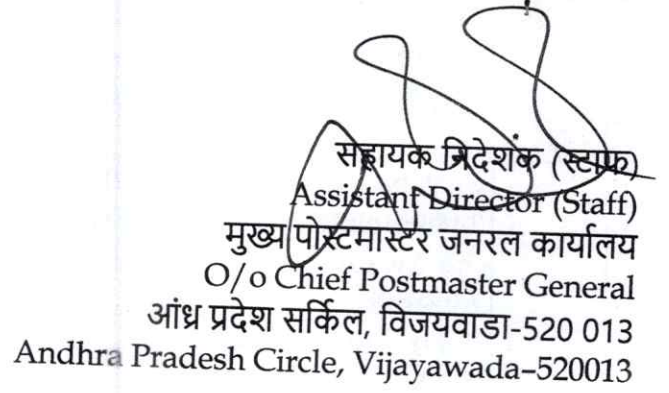 सहायक निदेशक (स्टाफ)
Assistant Director (Staff)
मुख्य पोस्टमास्टर जनरल कार्यालय
O/o Chief Postmaster General
आंध्र प्रदेश सर्किल, विजयवाडा-520 013
Andhra Pradesh Circle, Vijayawada–520013